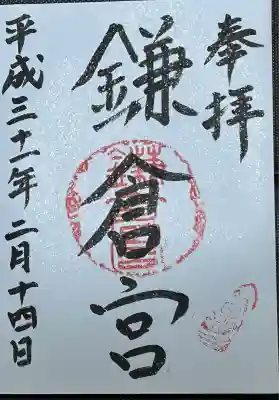 奉拝
鎌倉宮
平成三十一年 二月十四日